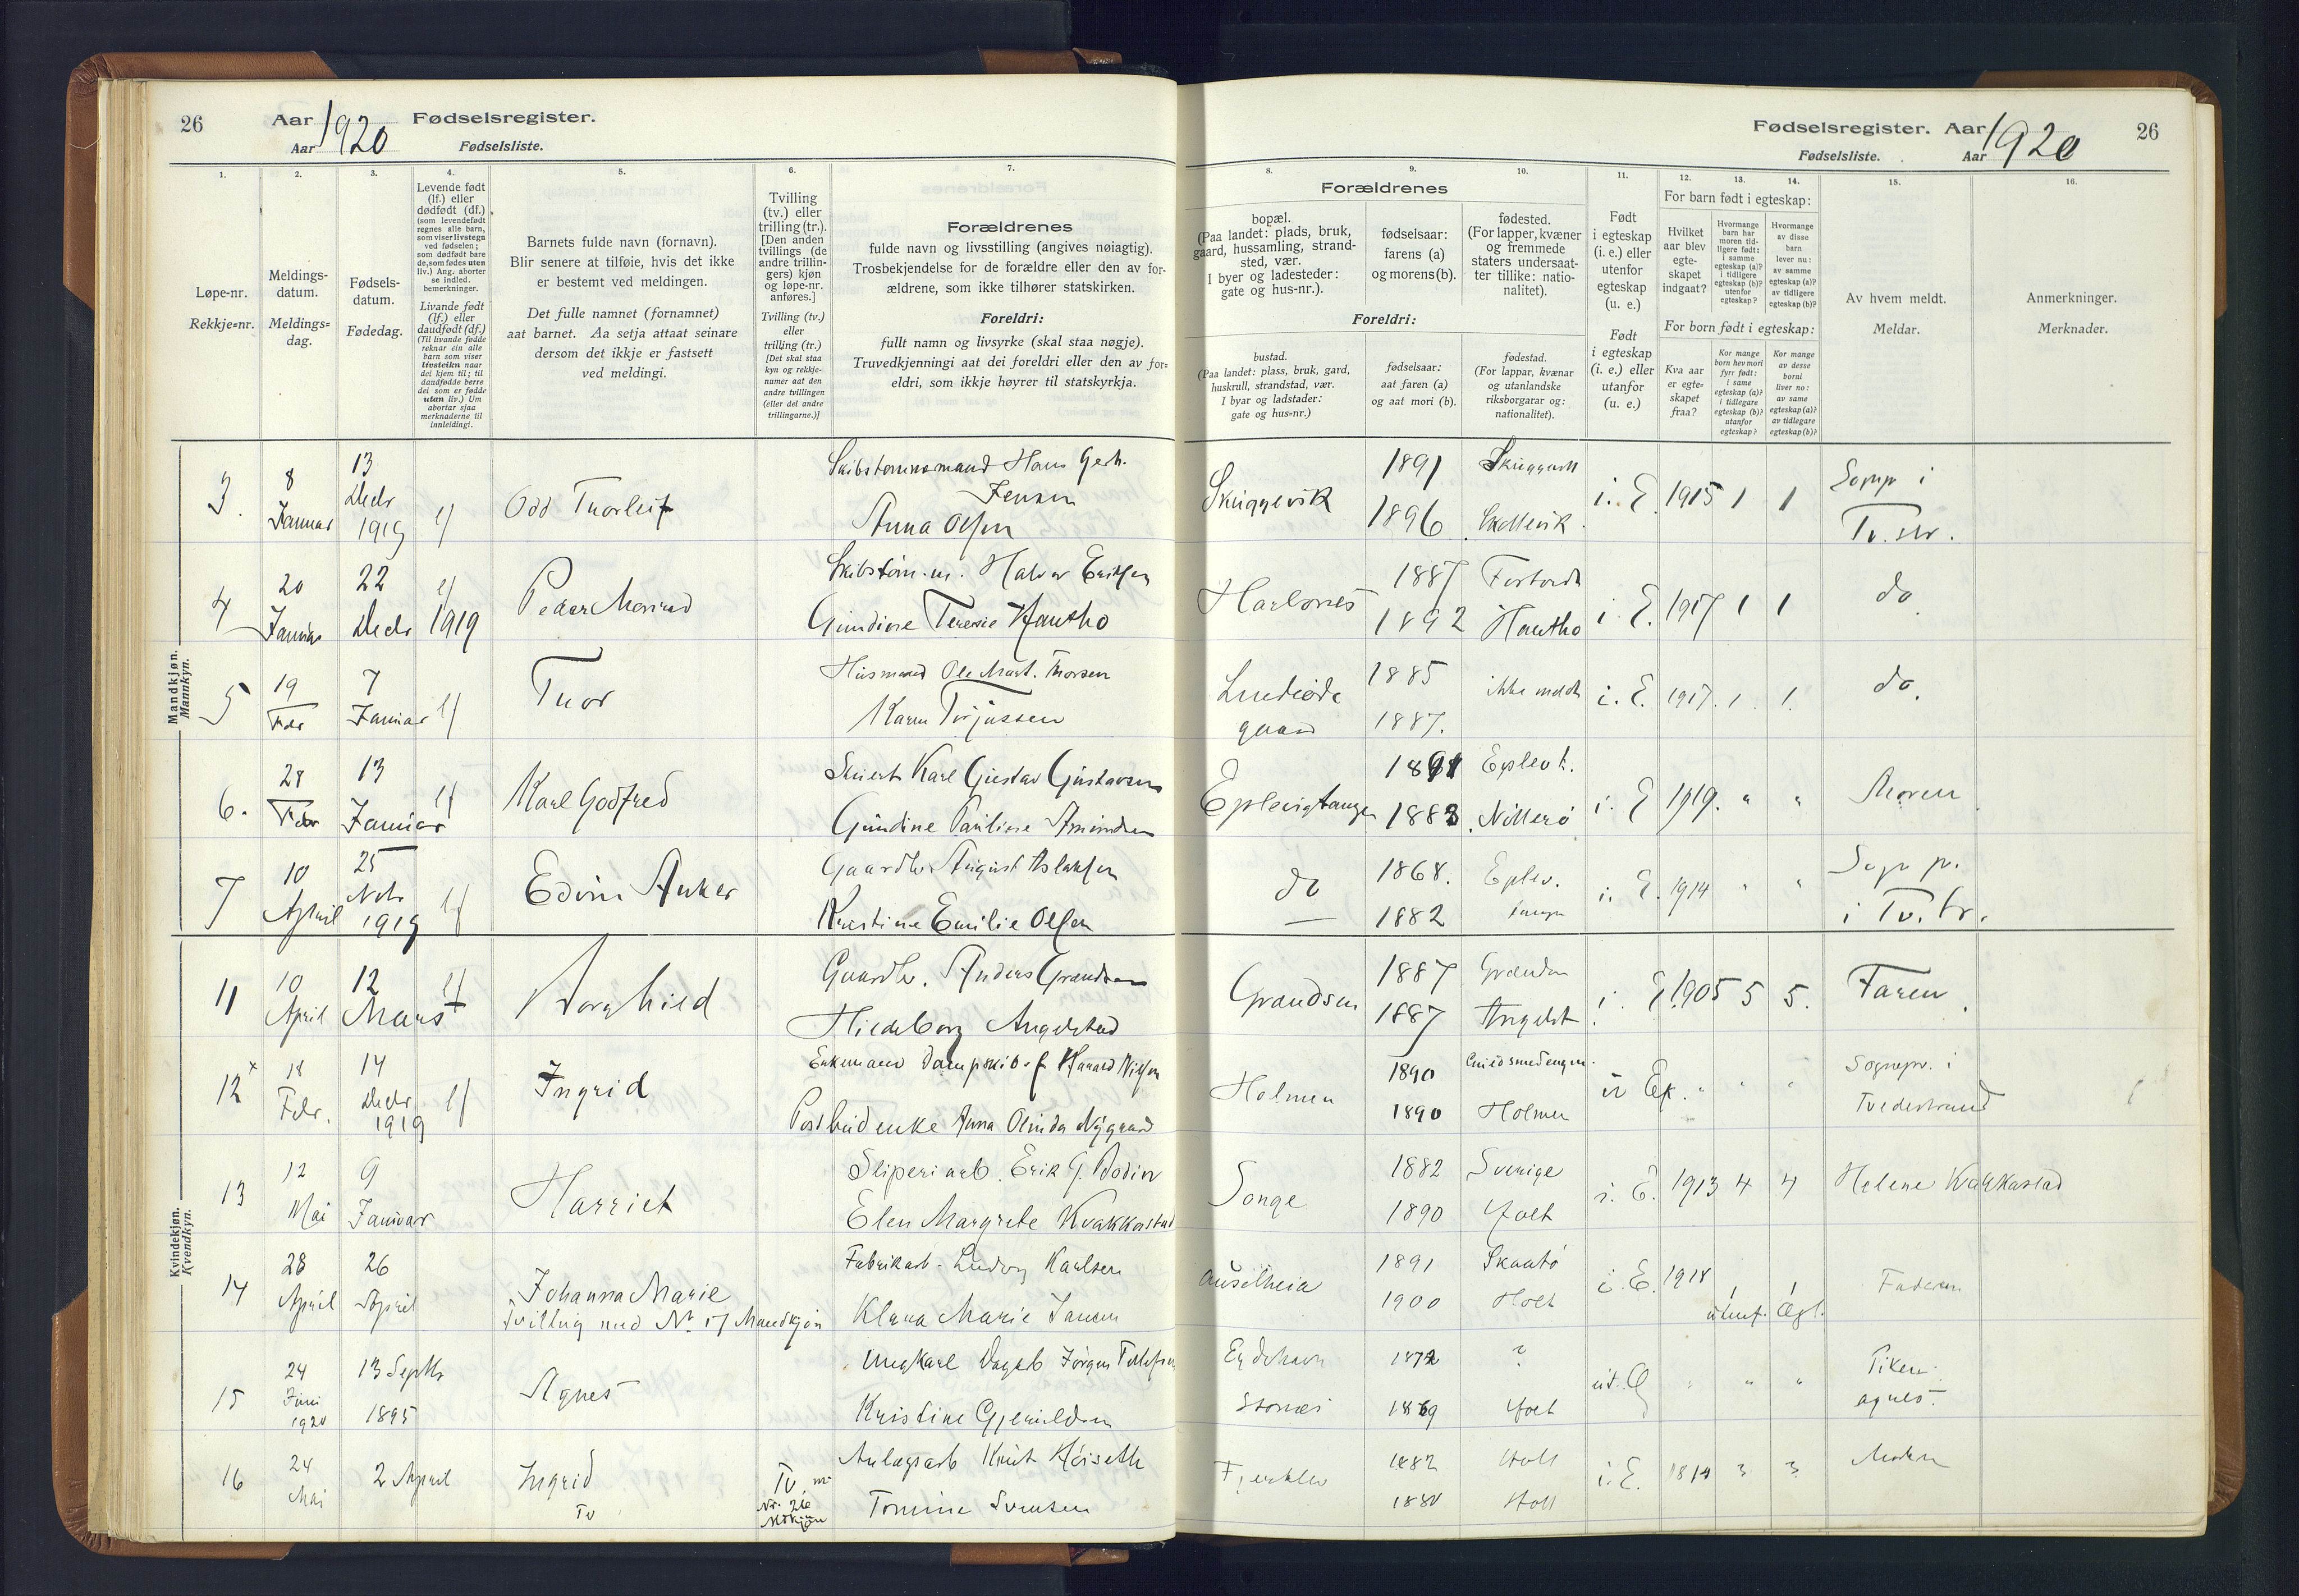 26
Aar 1920 Fødselsregister.
Aar Fødselsliste.
1.
2.
3.
4.
5.
6.
7.
Løpe-nr.
Rekkje=nr.
Meldings-
datum.
Meldings=
dag.
Fødsels-
datum.
Fødedag.
Levende født
(lf.) eller
dødfødt (df.)
(som levendefødt
regnes alle barn,
som viser livstegn
ved fødselen;
som dødfødt bare
de, som fødes uten
liv.) Ang. aborter
se indled.
bemerkninger.
Livande født
(lf.) eller
daudfødt (df.)
(Til livande fødde
reknar ein alle
barn som viser
livsteikn naar
dei kjem til; til
daudfødde berre
dei som er fødde
utan liv.) Um
abortar sjaa
merknaderne til
innleidingi.
Barnets fulde navn (fornavn).
Blir senere at tilføie, hvis det ikke
er bestemt ved meldingen.
Det fulle namnet (fornamnet)
aat barnet. Aa setja attaat seinare
dersom det ikkje er fastsett
ved meldingi.
Tvilling
(tv.) eller
trilling (tr.).
[Den anden
tvillings (de
andre trillin-
gers) kjøn
og løpe-nr.
anføres.]
Tvilling (tv.)
eller
trilling (tr.)
[Det skal staa
kyn og rekkje-
numer aat den
andre tvillingen
(eller dei andre
trillingarne.)]
Forældrenes
fulde navn og livsstilling (angives nøiagtig).
Trosbekjendelse for de forældre eller den av for-
ældrene, som ikke tilhører statskirken.
Foreldri:
fullt namn og livsyrke (skal staa nøgje).
Truvedkjenningi aat dei foreldri eller den av for-
eldri, som ikkje høyrer til statskyrkja.
Mandkjøn.
Mannkyn.
3. 8 Januar 13 Decbr 1919 lf Odd Thorleif
Skibstømmermand Hans Gerh.
Jensen
Anna Olsen
4 20 Januar 22 Decbr 1919 lf Peder Monrad
Skibstøm.m. Halvor Eriksen
Gundine Terese Hantho
5 19 Febr 7 Januar lf Thor
Husmand Ole Mart. Thorsen
Karen Torjussen
6. 28 Febr 13 Januar lf Karl Godfred
Karl Gustav Gustavsen
Gundine Pauline Amundsen
7 10 April 25 Nobr 1919 lf Edvin Anker
Gaardbr August Aslaksen
Kristine Emilie Olsen
Kvindekjøn.
Kvendkyn.
11 10 April 12 Mars lf Borghild
Gaardbr. Anders Grandsen
Hildeborg Angelstad
12 x 18 Febr. 14 Decbr 1919 lf Ingrid
Enkemand Dampskibs.f Harald Nilsen
Postbud enke Anna Olinda Nygaard
13 12 Mai 9 Januar Harriet
Sliperiarb. Erik G. Bodin
Elen Margrete Kvakkastad
14 28 April 26 April Johanna Marie
Tvilling med Nr 17 Mandkjøn
Fabrikarb. Ludvig Karlsen
Klara Marie Jansen
15 24 Juni 1920 13 Septbr 1895 Agnes
Ungkarl Dagarb Jørgen Tellefsen
Kristine Gjeruldsen
16 24 Mai 2 April Ingrid
Tv
Tv. m.
Nr. 26
Mdkjøn
Anlægsarb Knut Høiseth
Tomine Svensen
Fødselsregister. Aar 1920
Fødselsliste. Aar
26
8.
9.
10.
11.
12.
13.
14.
15.
16.
Forældrenes
bopæl.
(Paa landet: plads, bruk,
gaard, hussamling, strand-
sted, vær.
I byer og ladesteder:
gate og hus-nr.).
fødselsaar:
farens (a)
og morens (b).
fødested.
(For lapper, kvæner
og fremmede
staters undersaat-
ter tillike: natio-
nalitet).
Foreldri:
bustad.
(Paa landet: plass, bruk, gard,
huskrull, strandstad, vær.
I byar og ladstader:
gate og hus=nr.)
fødselsaar:
aat faren (a)
og aat mori (b).
fødestad.
(For lappar, kvænar
og utanlandske
riksborgarar og:
nationalitet).
Født
i egteskap
(i. e.) eller
utenfor
egteskap
(u. e.)
Født
i egteskap
(i. e.) eller
utanfor
egteskap
(u. e.)
For barn født i egteskap:
Hvilket
aar blev
egte-
skapet
indgaat?
Hvormange
barn har
moren tid-
ligere født:
i samme
egteskap (a)?
i tidligere
egteskap (b)?
utenfor
egteskap?
Hvormange
av disse
barn
lever nu:
av samme
egteskap (a)?
av tidligere
egteskap (b)?
For born født i egteskap:
Kva aar
er egte=
skapet
fraa?
Kor mange
born hev mori
fyrr født:
i same
egteskap (a)?
i tidlegare
egteskap (b)?
utanfor
egteskap?
Kor mange
av desse
borni
liver no:
av same
egteskap (a)?
av tidlegare
egteskap (b)?
Av hvem meldt.
Meldar.
Anmerkninger.
Merknader.
Skuggevik 1891 1896 Skallevik i. E. 1915 1 1 Sognp i
Tv.str.
1887 1892 Hantho i E. 1917 1 1 do
gaard 1885 1887. ikke meldt i. E. 1917. 1. 1. do.
Eplevigtangen 1891 1883 Eplevt. i. E 1919. " " Moren
do 1868. 1882 Eplev. tangen i. E. 1914 " " Sognp.
i Tv.str.
Grandsen 1887 1887 Grandsen Angelst. i. E. 1905 5 5. Faren.
Holmen 1890 1890 Holmen u Ek. " " " Sognepr. i
Tvedestrand
Songe 1882 1890 Sverige Holt i. E. 1913 4 4 Helene Kvakkastad
1891 1900 Skaatø Holt i. E. 1918 1 1 Faderen
utenf. Ægt.
Eydehavn 1872 ? ut. E " " " Piken
Stornes 1869 Holt Agnes.
1882 1880 Holt Holt i. E. 1914 3 3 Moderen